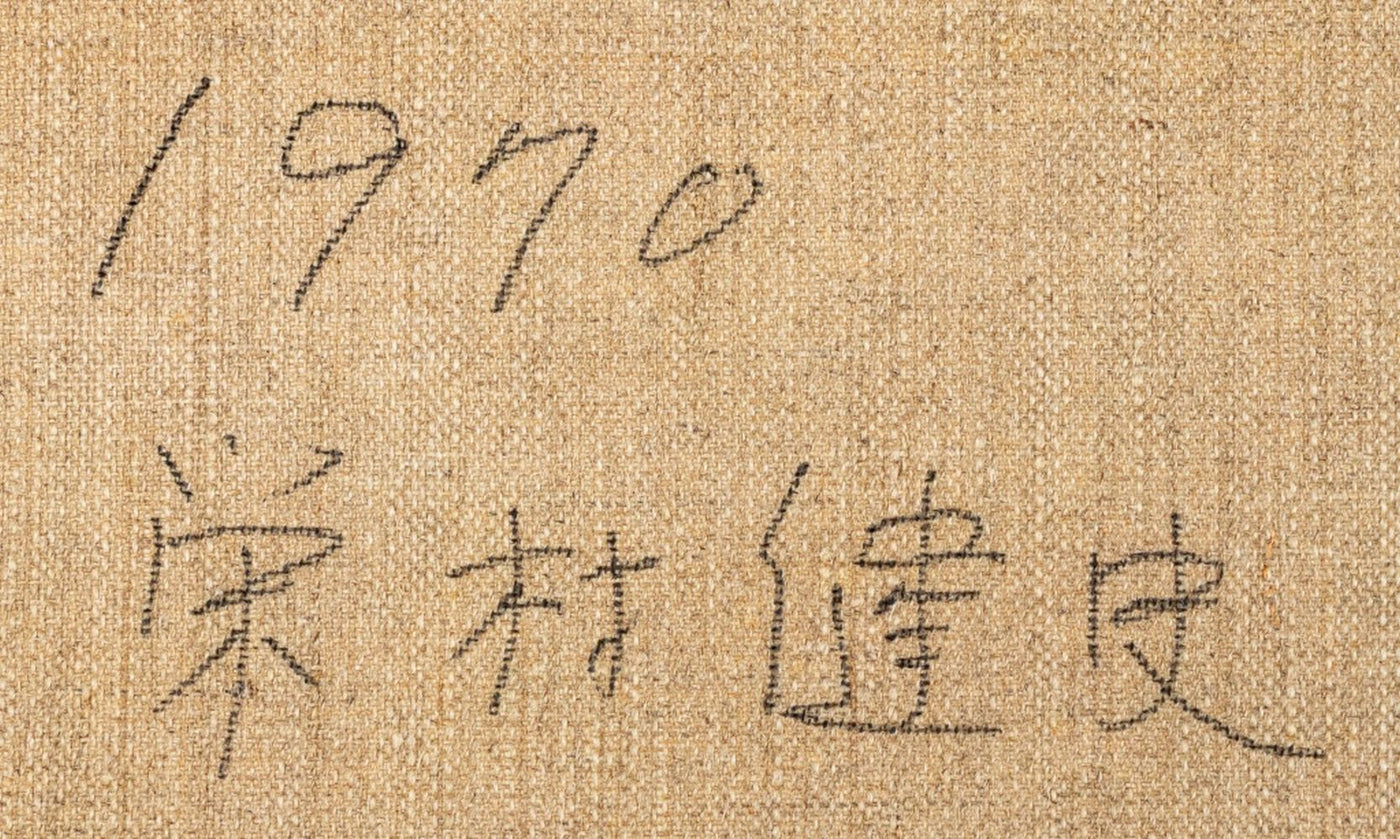 1970
栄村健史